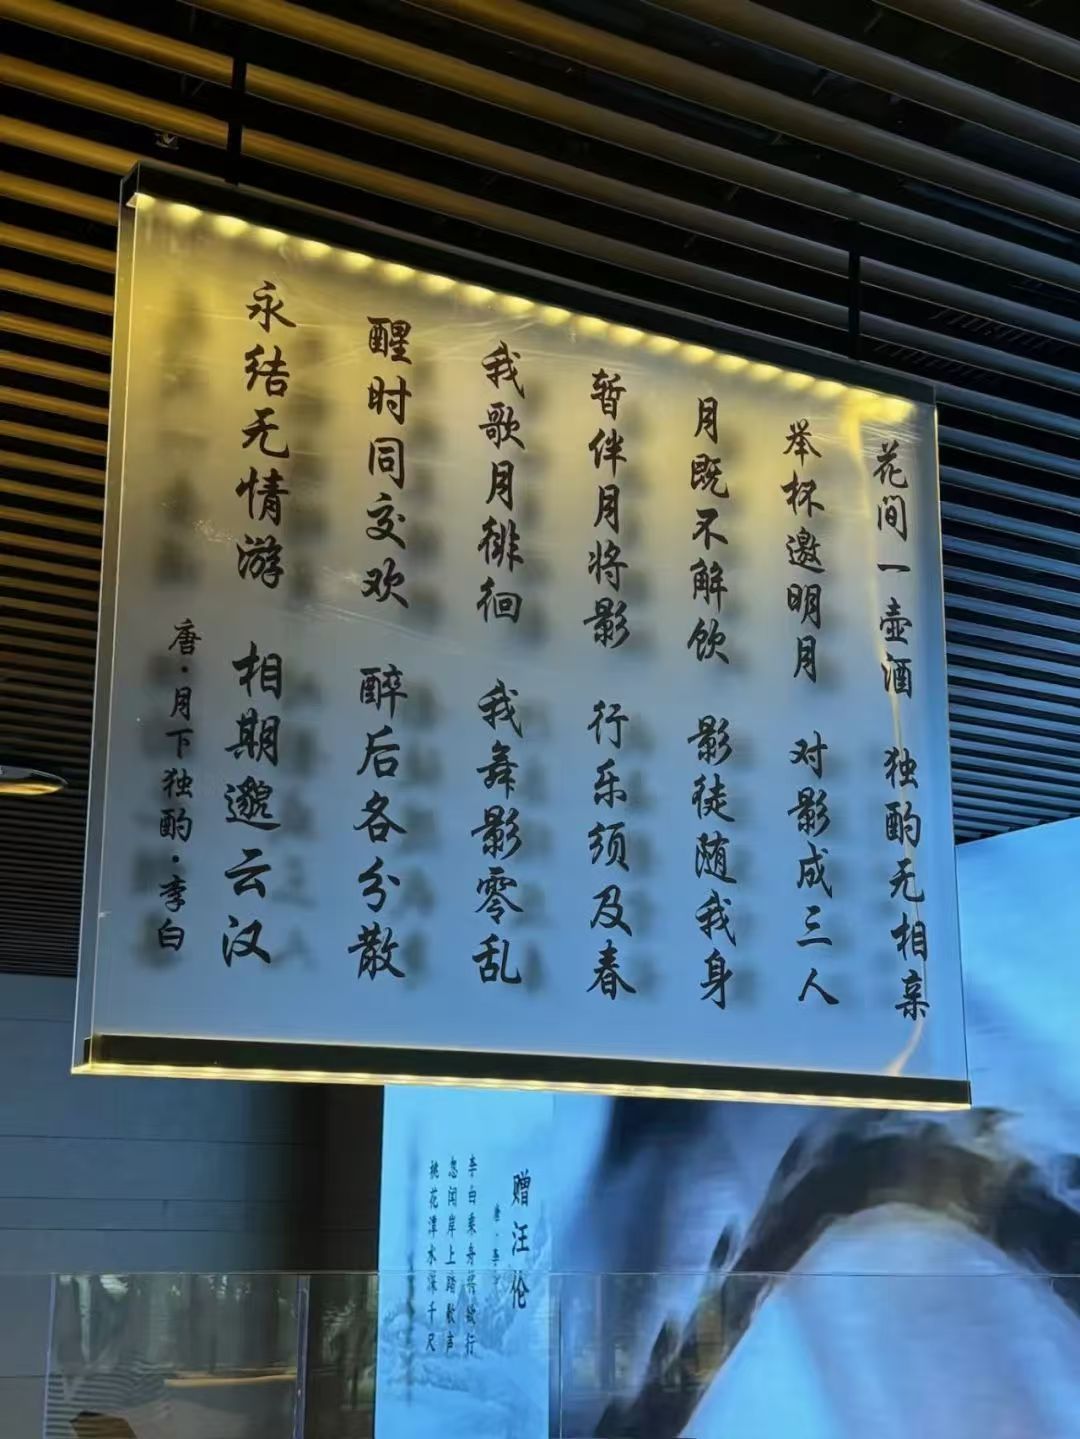 花间一壶酒 独酌无相亲
举杯邀明月 对影成三人
月既不解饮 影徒随我身
暂伴月将影 行乐须及春
我歌月徘徊 我舞影零乱
醒时同交欢 醉后各分散
永结无情游 相期邈云汉
唐·月下独酌·李白
赠汪伦
唐·李
李白乘舟将欲行
忽闻岸上踏歌声
桃花潭水深千尺